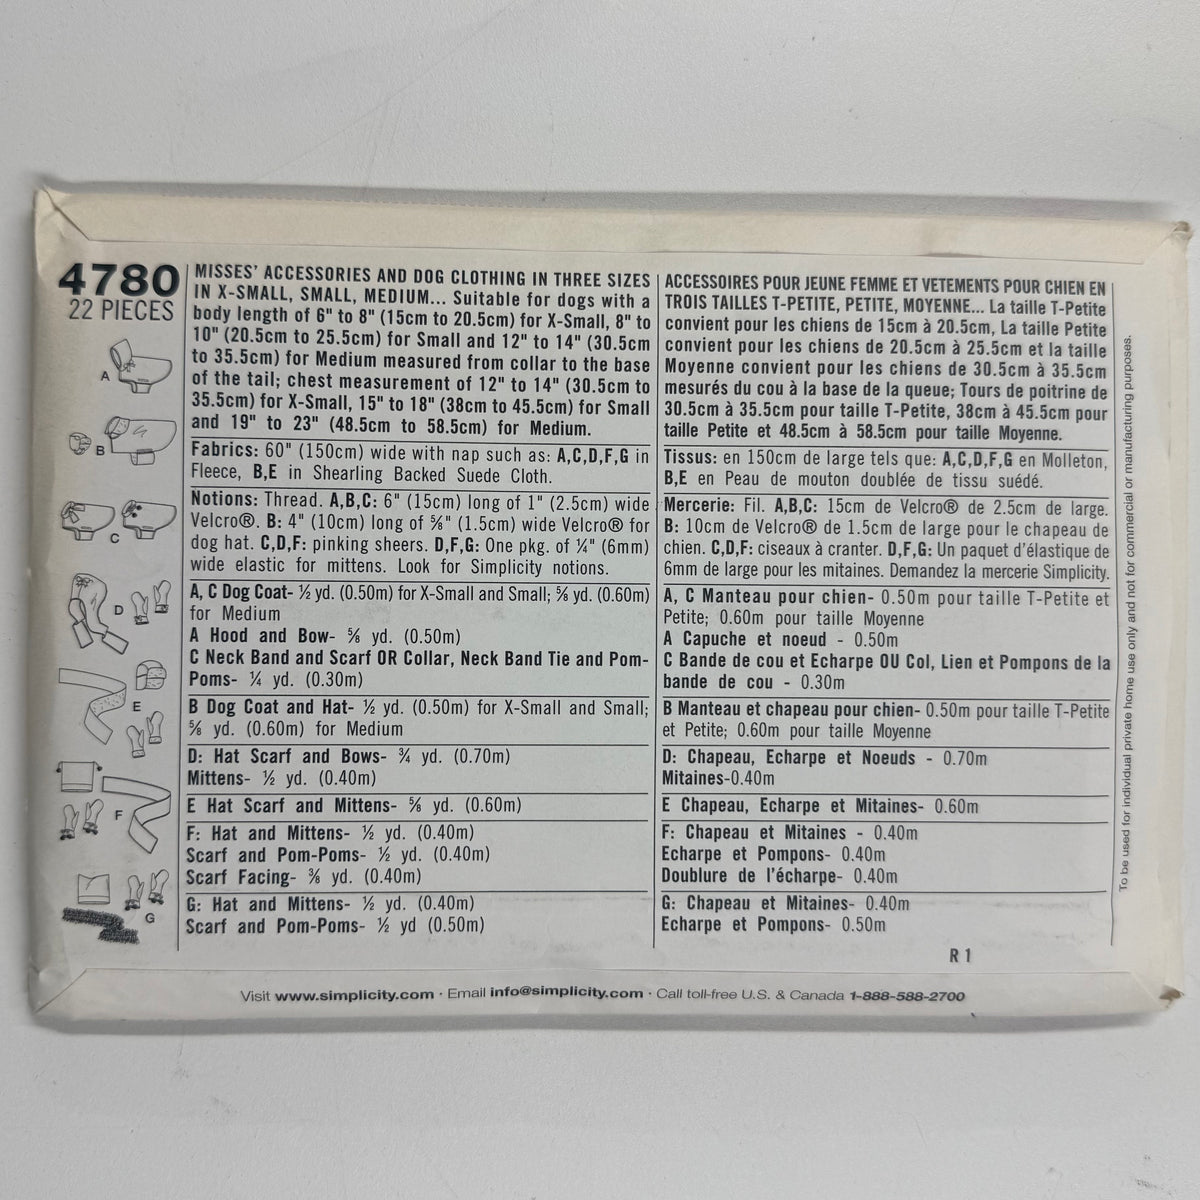 4780
22 PIECES
A
B
C
D
E
F
G
MISSES' ACCESSORIES AND DOG CLOTHING IN THREE SIZES
IN X-SMALL, SMALL, MEDIUM... Suitable for dogs with a
body length of 6" to 8" (15cm to 20.5cm) for X-Small, 8" to
10" (20.5cm to 25.5cm) for Small and 12" to 14" (30.5cm
to 35.5cm) for Medium measured from collar to the base
of the tail; chest measurement of 12" to 14" (30.5cm to
35.5cm) for X-Small, 15" to 18" (38cm to 45.5cm) for Small
and 19" to 23" (48.5cm to 58.5cm) for Medium.
Fabrics: 60" (150cm) wide with nap such as: A,C,D,F,G in
Fleece, B,E in Shearling Backed Suede Cloth.
Notions: Thread. A,B,C: 6" (15cm) long of 1" (2.5cm) wide
Velcro®. B: 4" (10cm) long of ⅝" (1.5cm) wide Velcro® for
dog hat. C,D,F: pinking sheers. D,F,G: One pkg. of ¼" (6mm)
wide elastic for mittens. Look for Simplicity notions.
A, C Dog Coat- ½ yd. (0.50m) for X-Small and Small; ⅝ yd. (0.60m)
for Medium
A Hood and Bow- ⅝ yd. (0.50m)
C Neck Band and Scarf OR Collar, Neck Band Tie and Pom-
Poms- ¼ yd. (0.30m)
B Dog Coat and Hat- ½ yd. (0.50m) for X-Small and Small;
⅝ yd. (0.60m) for Medium
D: Hat Scarf and Bows- ¾ yd. (0.70m)
Mittens- ½ yd. (0.40m)
E Hat Scarf and Mittens- ⅝ yd. (0.60m)
F: Hat and Mittens- ½ yd. (0.40m)
Scarf and Pom-Poms- ½ yd. (0.40m)
Scarf Facing- ⅜ yd. (0.40m)
G: Hat and Mittens- ½ yd. (0.40m)
Scarf and Pom-Poms- ½ yd (0.50m)
ACCESSOIRES POUR JEUNE FEMME ET VETEMENTS POUR CHIEN EN
TROIS TAILLES T-PETITE, PETITE, MOYENNE... La taille T-Petite
convient pour les chiens de 15cm à 20.5cm, La taille Petite
convient pour les chiens de 20.5cm à 25.5cm et la taille
Moyenne convient pour les chiens de 30.5cm à 35.5cm
mesurés du cou à la base de la queue; Tours de poitrine de
30.5cm à 35.5cm pour taille T-Petite, 38cm à 45.5cm pour
taille Petite et 48.5cm à 58.5cm pour taille Moyenne.
Tissus: en 150cm de large tels que: A,C,D,F,G en Molleton,
B,E en Peau de mouton doublée de tissu suédé.
Mercerie: Fil. A,B,C: 15cm de Velcro® de 2.5cm de large.
B: 10cm de Velcro® de 1.5cm de large pour le chapeau de
chien. C,D,F: ciseaux à cranter. D,F,G: Un paquet d'élastique de
6mm de large pour les mitaines. Demandez la mercerie Simplicity.
A, C Manteau pour chien- 0.50m pour taille T-Petite et
Petite; 0.60m pour taille Moyenne
A Capuche et noeud - 0.50m
C Bande de cou et Echarpe OU Col, Lien et Pompons de la
bande de cou - 0.30m
B Manteau et chapeau pour chien- 0.50m pour taille T-Petite
et Petite; 0.60m pour taille Moyenne
D: Chapeau, Echarpe et Noeuds - 0.70m
Mitaines-0.40m
E Chapeau, Echarpe et Mitaines- 0.60m
F: Chapeau et Mitaines - 0.40m
Echarpe et Pompons- 0.40m
Doublure de l'écharpe- 0.40m
G: Chapeau et Mitaines- 0.40m
Echarpe et Pompons- 0.50m
R 1
To be used for individual private home use only and not for commercial or manufacturing purposes.
Visit www.simplicity.com · Email info@simplicity.com · Call toll-free U.S. & Canada 1-888-588-2700